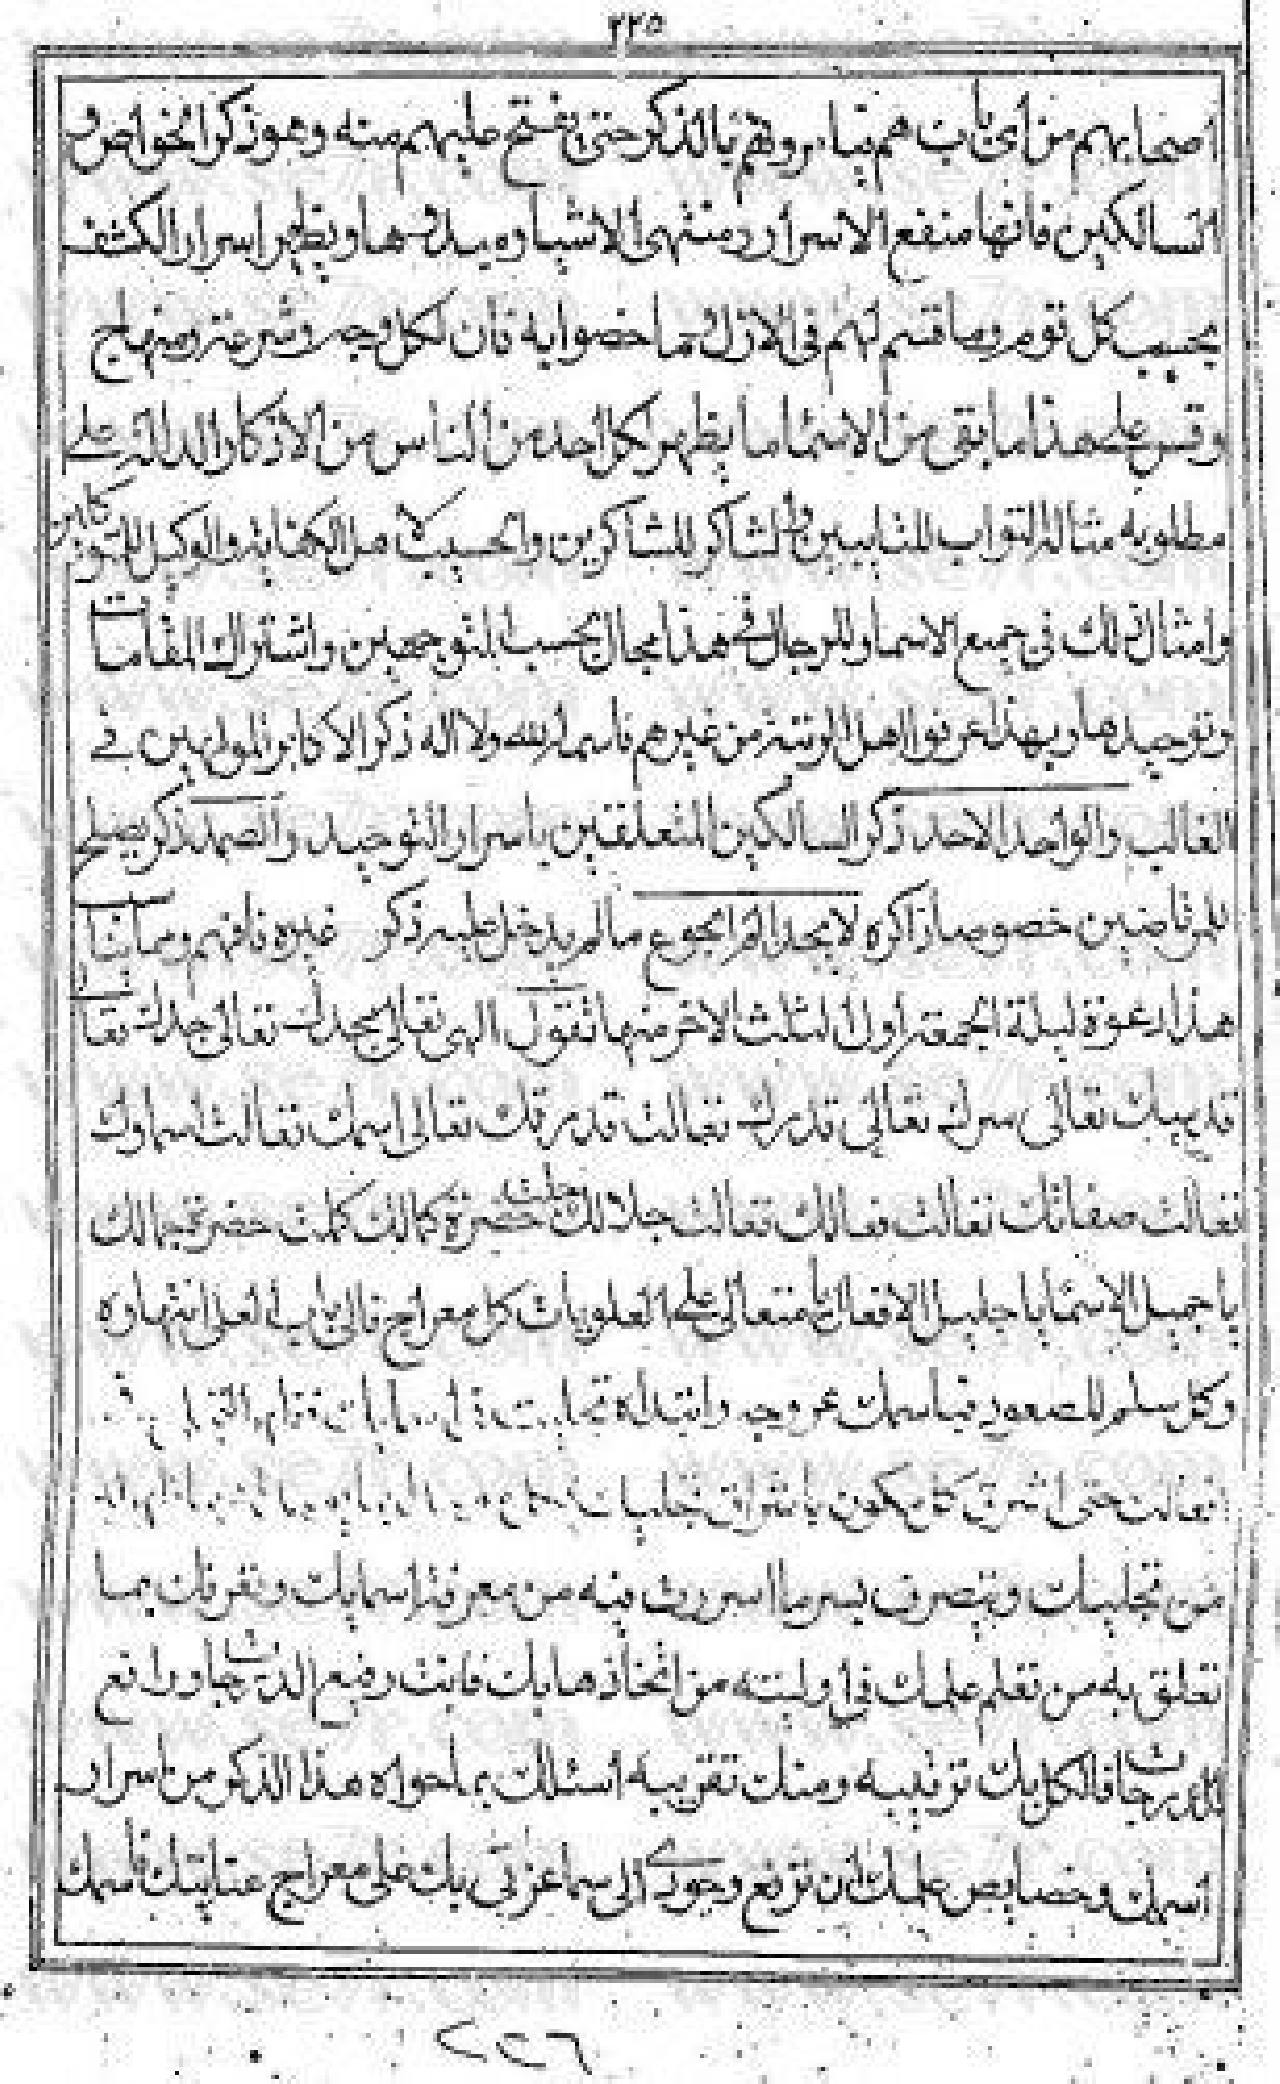 ٢٢٥
اصحابهم من اى باب هم فيامروهم بالذكر حتى يفتح عليهم منه وهو ذكر الخواص و
السالكين فانها منفع الاسرار ومنتهى الاشيا وه ويظهر اسرار الكشف
بحسب كل قوم وما قسم لهم فى الازل مما خصوا به فان لكل وجه وشرعة ومنهاج
وقس على هذا ما بقى من الاسما ما يظهر لكل احد من الناس من الاذكار الدالة على
مطلوبه مثاله التواب للتايبين والشاكر للشاكرين والحسيب لاهل الكفاية والوكيل للمتوكلين
وامثال ذلك فى جميع الاسما وللرجال فى هذا مجال بحسب المتوجهين واشتراك المقامات
وتوحيدها وبهذا عرفوا اهل الرتبة من غيرهم فاسم الله ولا اله ذكر الاكابر المولهين فى
الغالب والواحد الاحد ذكر السالكين المتعلقين باسرار التوحيد والصمد ذكر يصلح
للمرتاضين خصوصا ذاكره لا يجد الم الجوع ما لم يدخل عليه ذكر غيره فافهم ومناسبات
هذا دعوة ليلة الجمعة اول الثلث الاخر منها تقول الهى تعالى مجدك تعالى جدك تعا
تعالى سرك تعالى قدرك تعالت قدرتك تعالى اسمك تعالت اسماوك
تعالت صفاتك تعالت فعالك تعالت جلالك جلت حضرة كمالك كملت حضرة جمالك
يا جميل الاسما يا جليل الافعال يا متعالى على العلويات كل معراج فالى باب العلى انتهاوه
وكل سلم للصعود فباسمك عروجه وابتداه
تعالت حتى اشرق كل مكون باشراق تجليات
من تجليات وتصرف بسر ما اسررت فيه من معرفة اسمايك وتعرفات بما
تعلق به من تعلم علمك فى اوليته من اتخاذها بك فانت رفيع الدرجات ورافع
الدرجات فالكل بك ترتيبه ومنك تقريبه اسئلك بما حواه هذا الذكر من اسرار
اسمك وخصايص علمك ان ترفع وجودى الى سما عزتى بك على معراج عنايتك فاسمك
٢٢٦